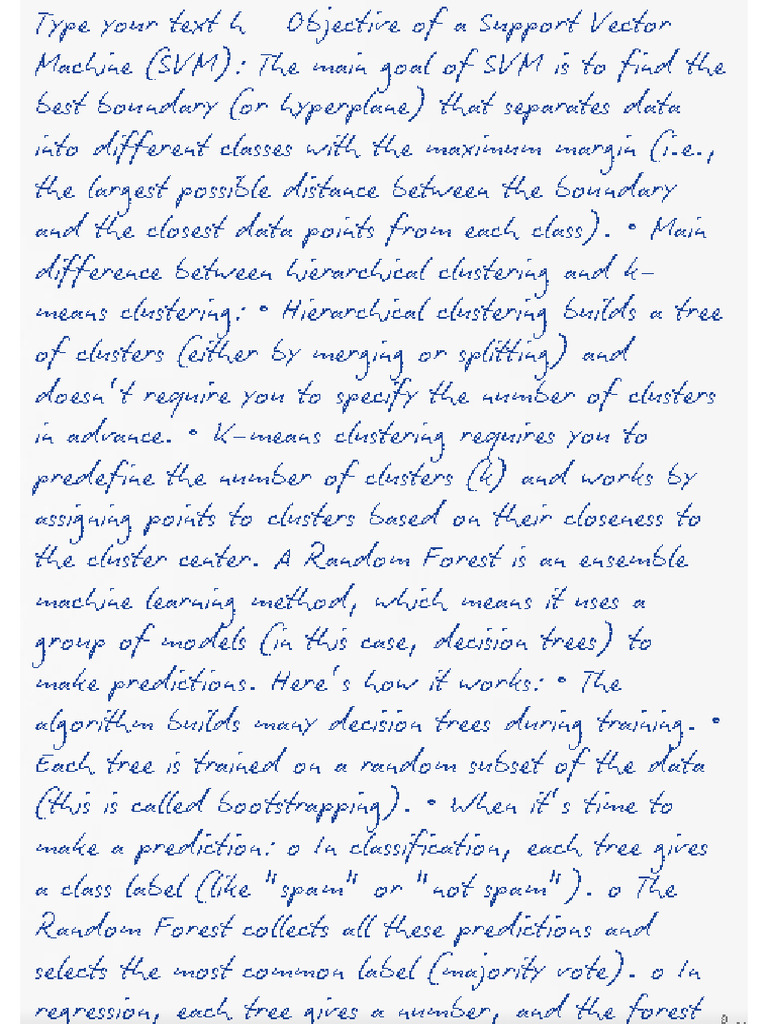 Type your text h Objective of a Support Vector
Machine (SVM): The main goal of SVM is to find the
best boundary (or hyperplane) that separates data
into different classes with the maximum margin (i.e.,
the largest possible distance between the boundary
and the closest data points from each class). • Main
difference between hierarchical clustering and k-
means clustering: • Hierarchical clustering builds a tree
of clusters (either by merging or splitting) and
doesn't require you to specify the number of clusters
in advance. • K-means clustering requires you to
predefine the number of clusters (k) and works by
assigning points to clusters based on their closeness to
the cluster center. A Random Forest is an ensemble
machine learning method, which means it uses a
group of models (in this case, decision trees) to
make predictions. Here's how it works: • The
algorithm builds many decision trees during training. •
Each tree is trained on a random subset of the data
(this is called bootstrapping). • When it's time to
make a prediction: o In classification, each tree gives
a class label (like "spam" or "not spam"). o The
Random Forest collects all these predictions and
selects the most common label (majority vote). o In
regression, each tree gives a number, and the forest